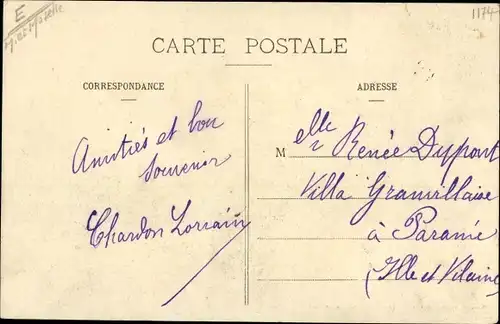 E
1174
CARTE POSTALE
CORRESPONDANCE
Amitiés et bon
souvenir
Chardon Lorrain
ADRESSE
Melle Renée Dupont
Villa Granvillaise
à Paramé
(Ille et Vilaine)